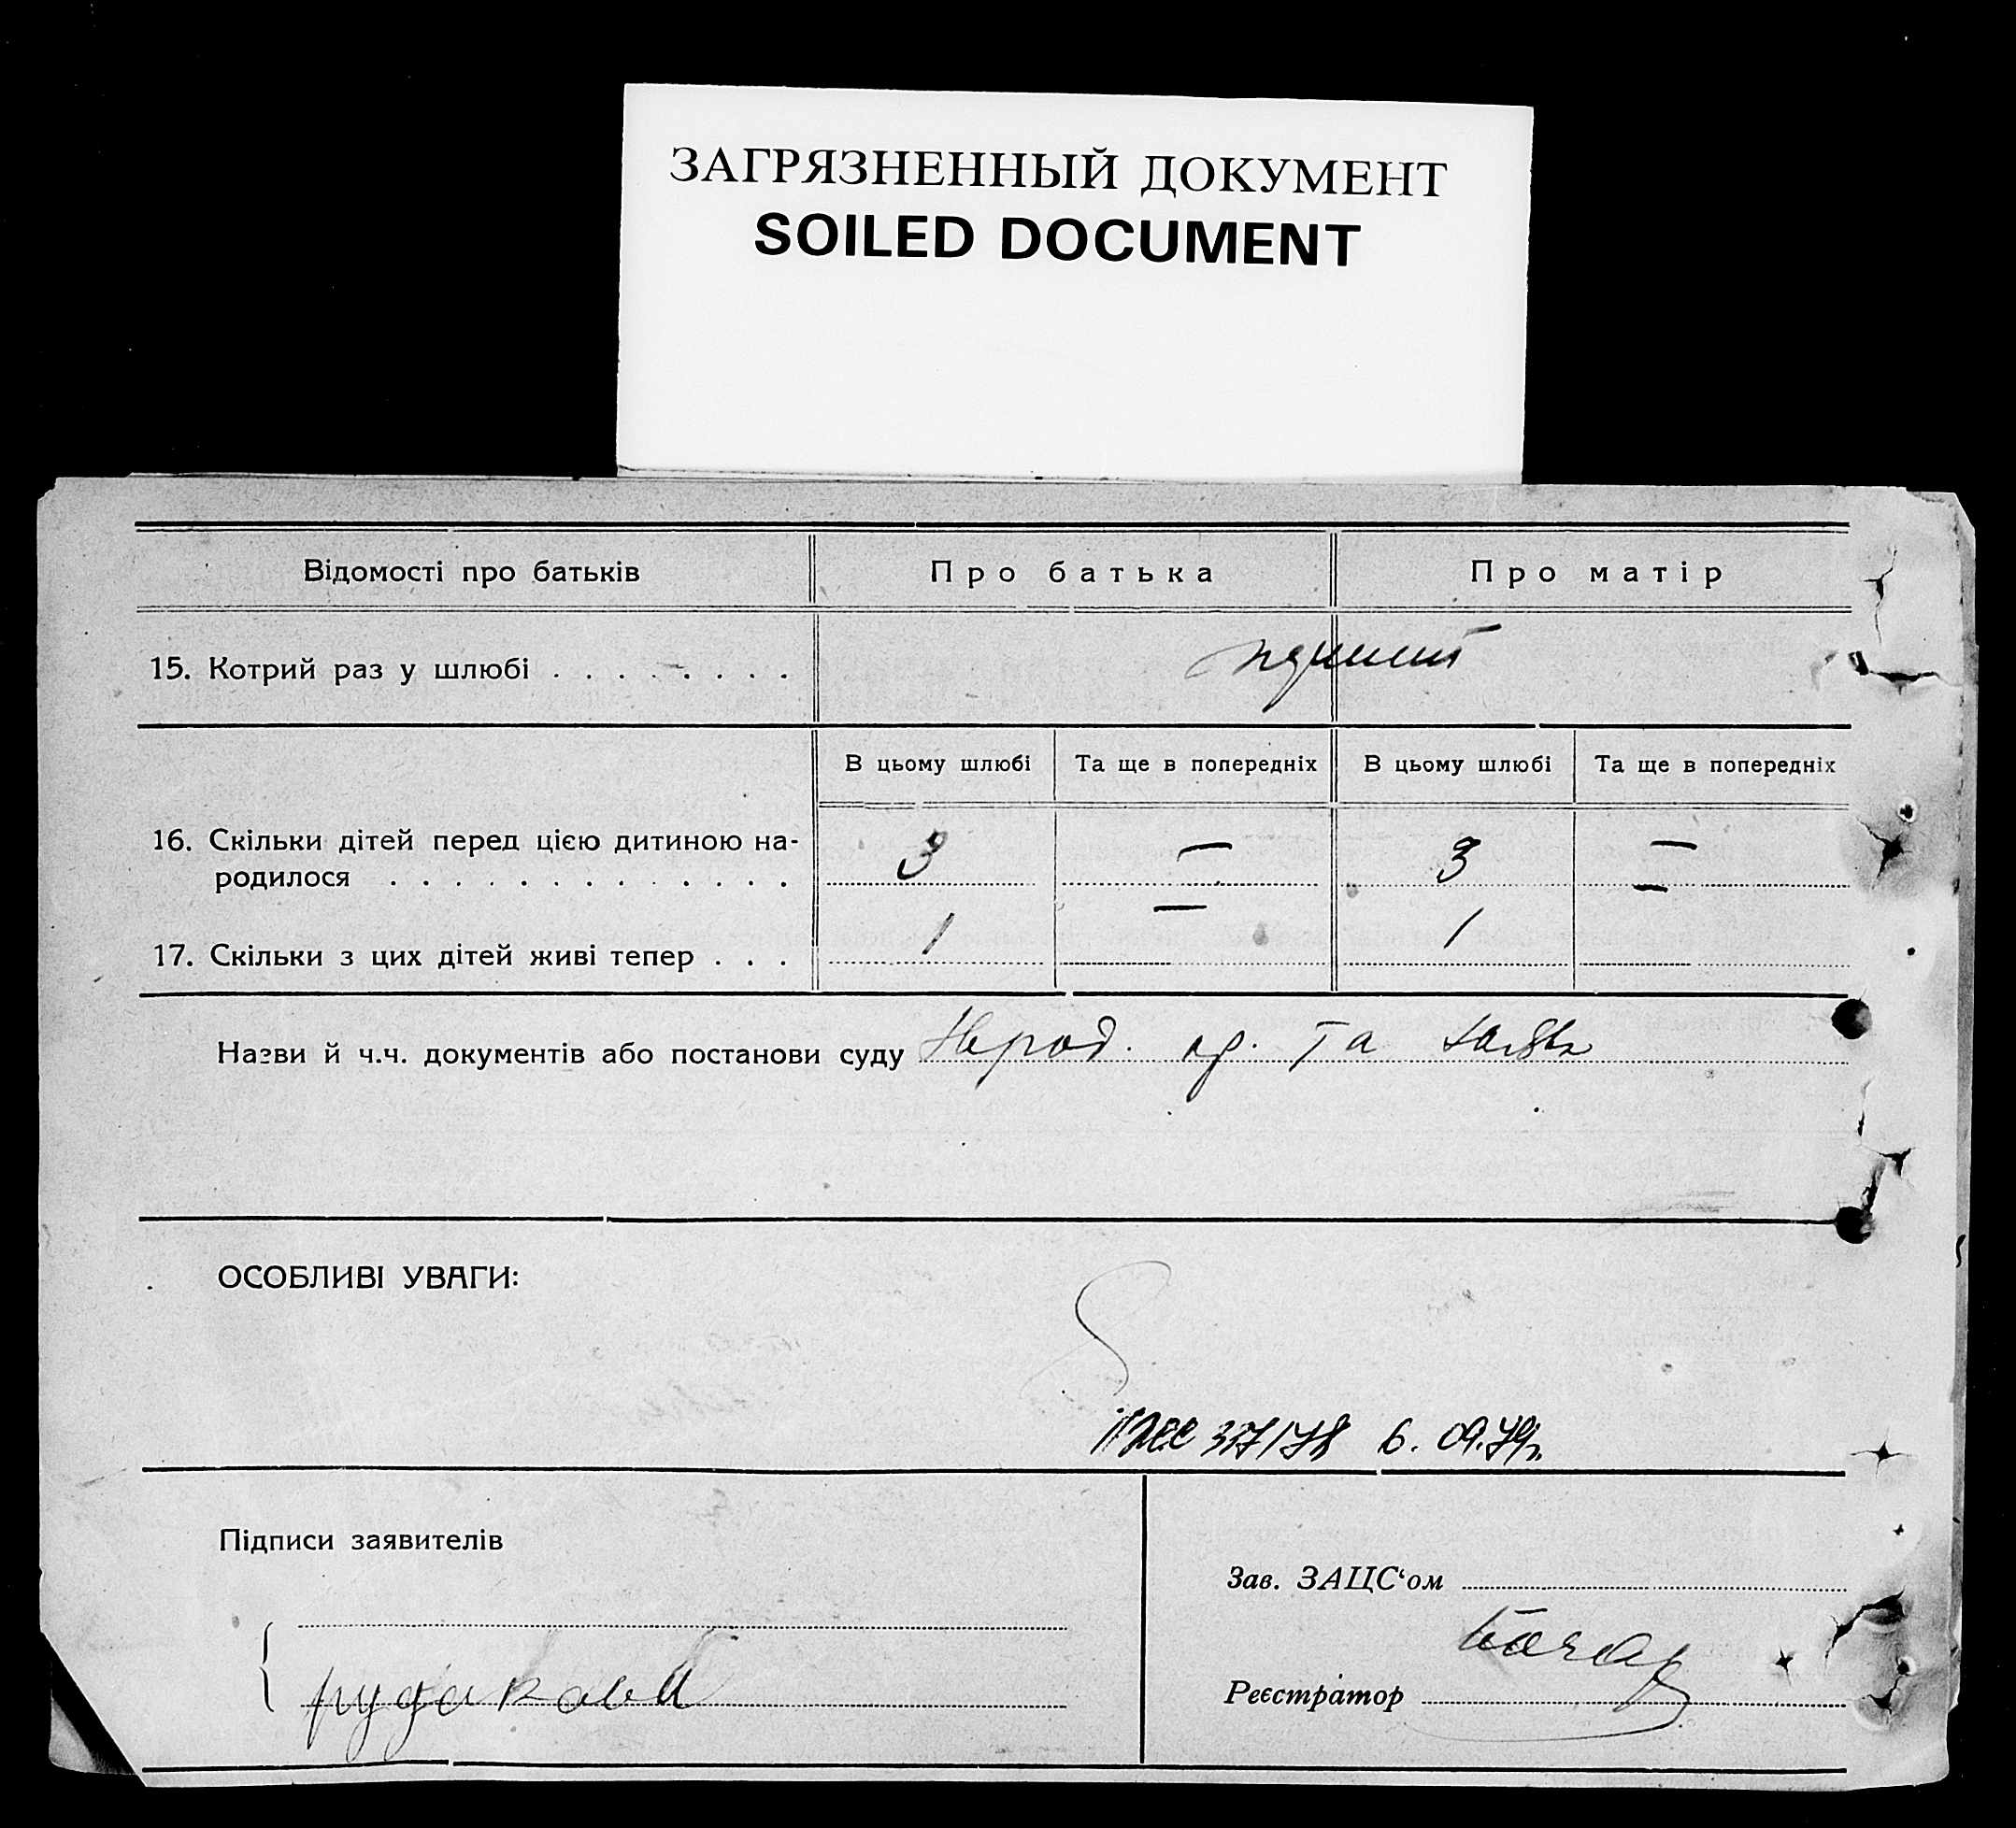 ЗАГРЯЗНЕННЫЙ ДОКУМЕНТ
SOILED DOCUMENT
Відомості про батьків Про батька Про матір
15. Котрий раз у шлюбі . . . . . . . .
В цьому шлюбі Та ще в попередніх В цьому шлюбі Та ще в попередніх
16. Скільки дітей перед цією дитиною на- 3 — 3 —
родилося . . . . . . . . . . . . .
17. Скільки з цих дітей живі тепер . . . 1 — 1 —
Назви й ч.ч. документів або постанови суду та
ОСОБЛИВІ УВАГИ:
6. 09.79г.
Підписи заявителів
Зав. ЗАЦС‘ом
рудакова
Реєстратор